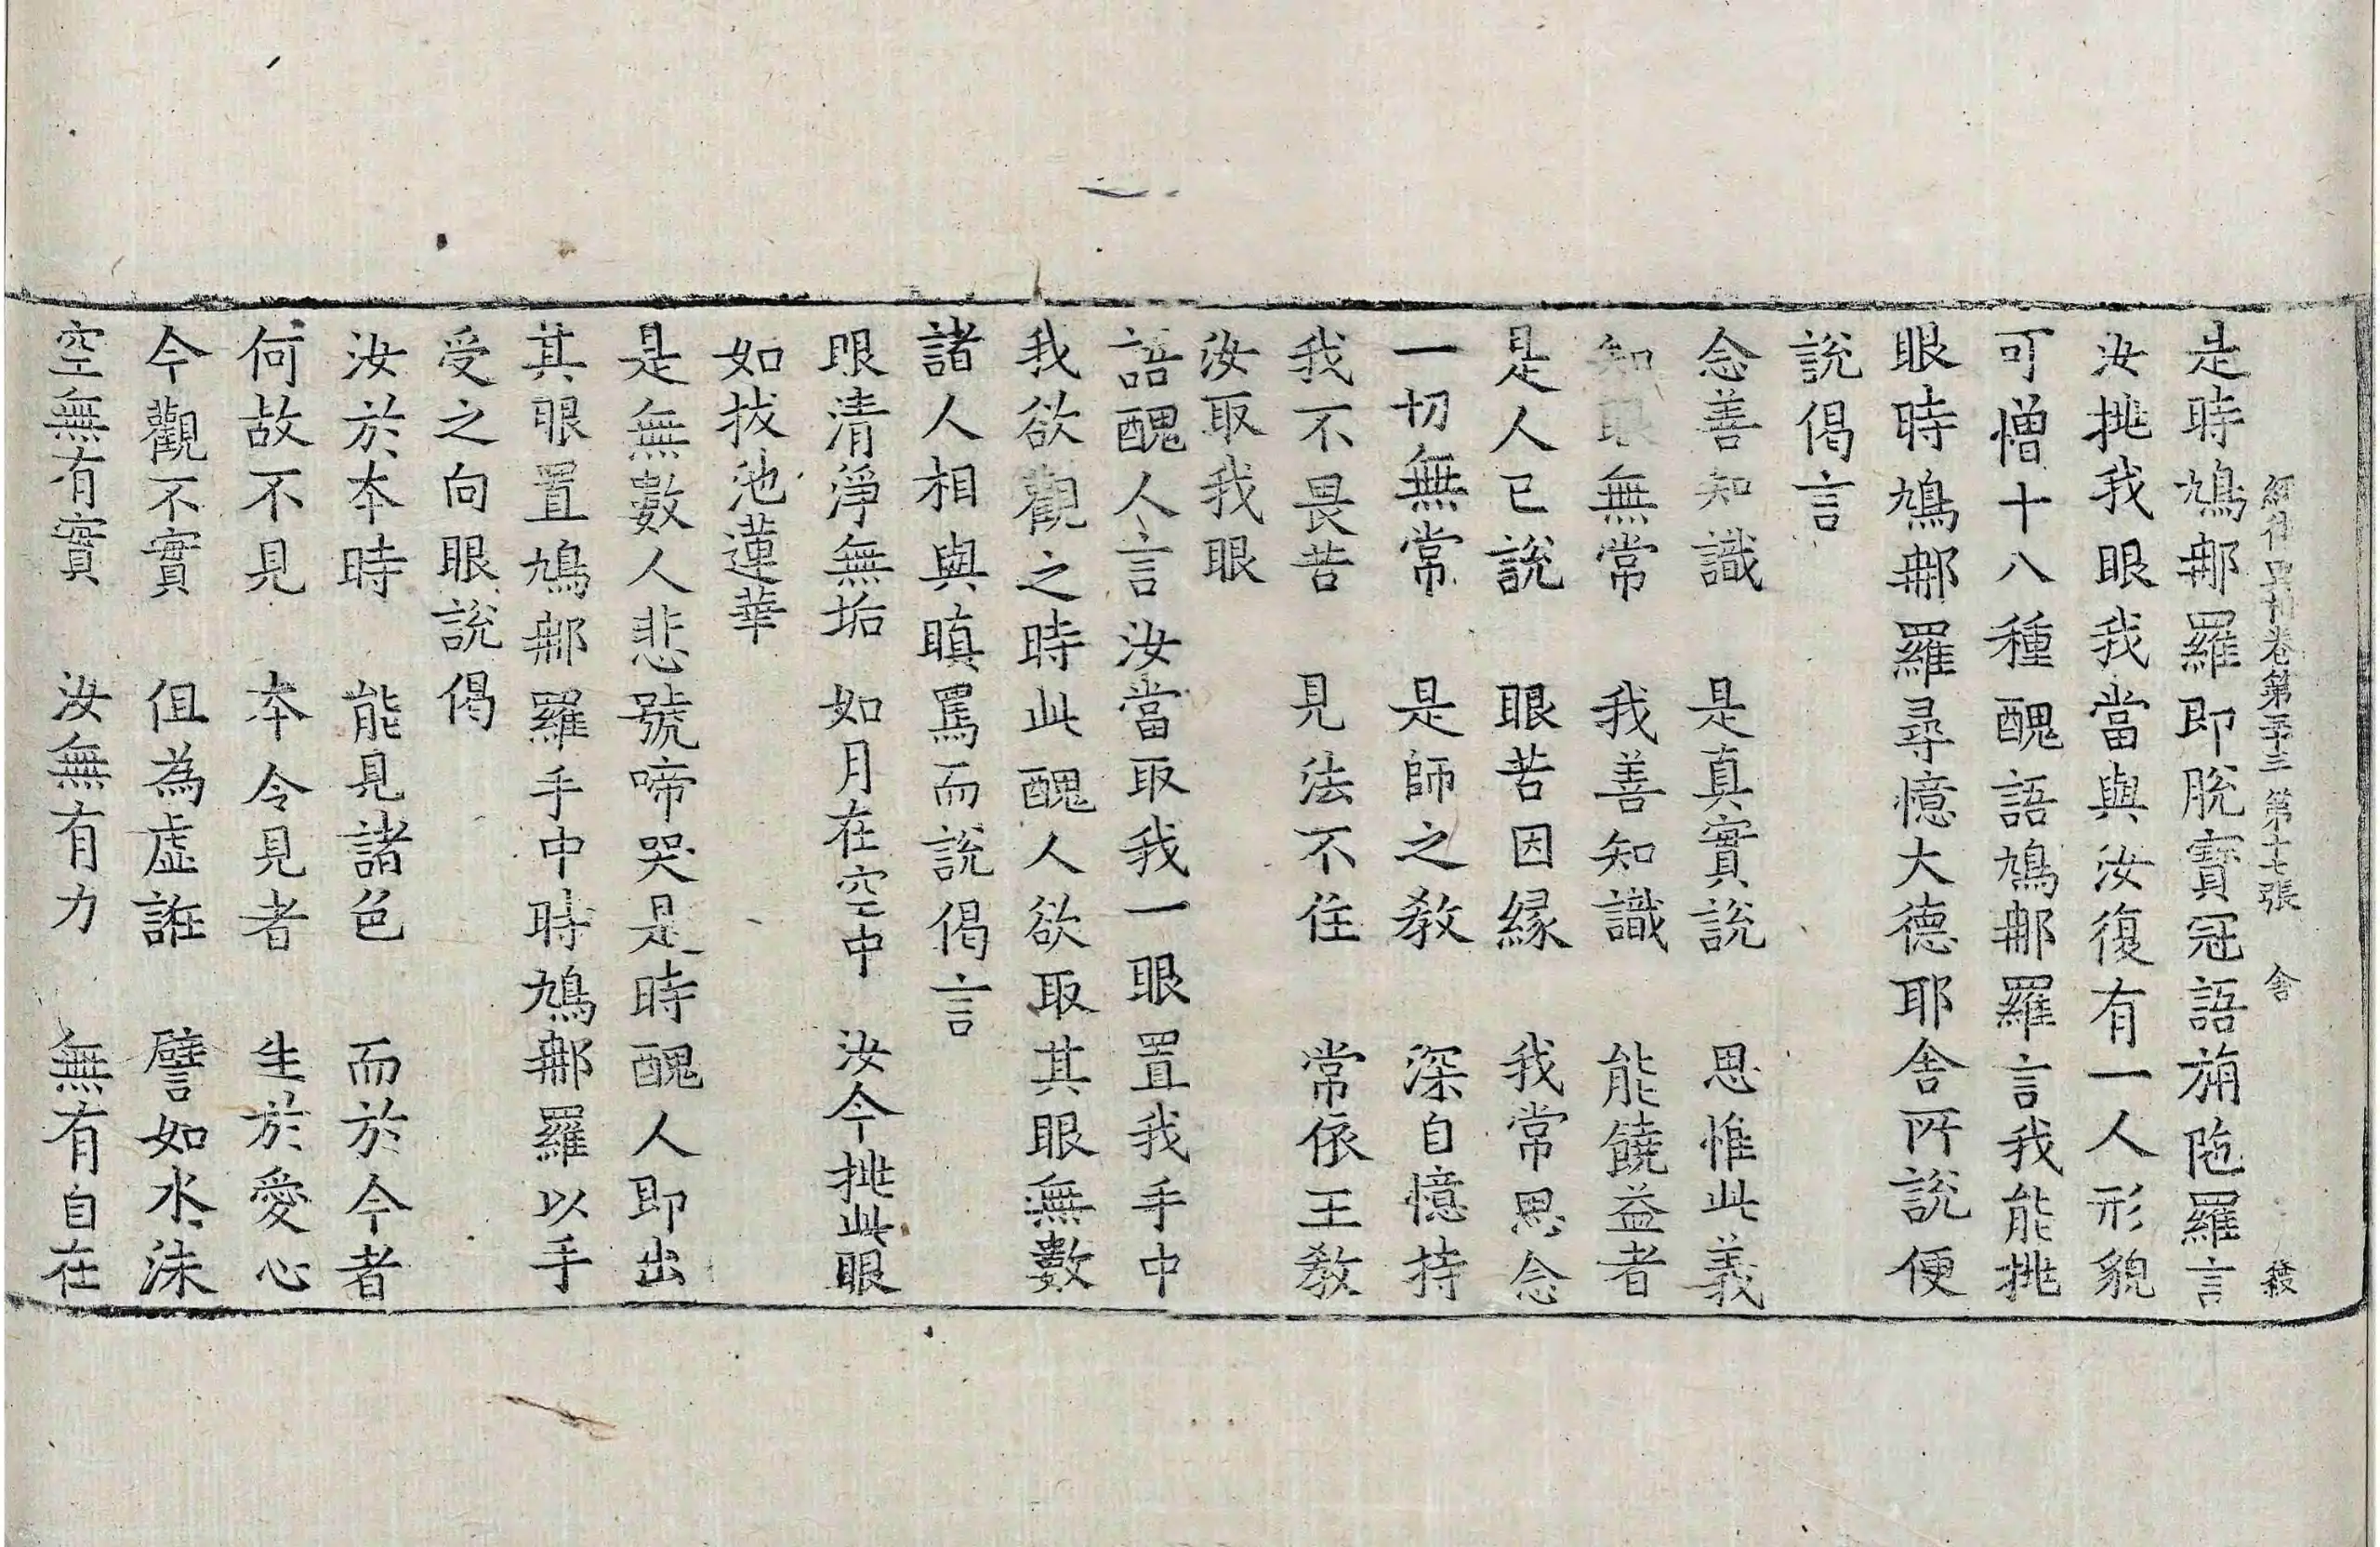 經律異相卷第三十三 第十七張 舍 綾
是時鳩𨚗羅即脫寶冠語旃陁羅言
汝挑我眼我當與汝復有一人形貌
可憎十八種醜語鳩𨚗羅言我能挑
眼時鳩𨚗羅尋憶大德耶舍所說便
說偈言
念善知識 是真實說 思惟此義
知眼無常 我善知識 能饒益者
是人已說 眼苦因緣 我常思念
一切無常 是師之教 深自憶持
我不畏苦 見法不住 常依王教
汝取我眼
語醜人言汝當取我一眼置我手中
我欲觀之時此醜人欲取其眼無數
諸人相與瞋罵而說偈言
眼清淨無垢 如月在空中 汝今挑此眼
如拔池蓮華
是無數人悲號啼哭是時醜人即出
其眼置鳩𨚗羅手中時鳩𨚗羅以手
受之向眼說偈
汝於本時 能見諸色 而於今者
何故不見 本令見者 生於愛心
今觀不實 但為虛誑 譬如水沫
空無有實 汝無有力 無有自在